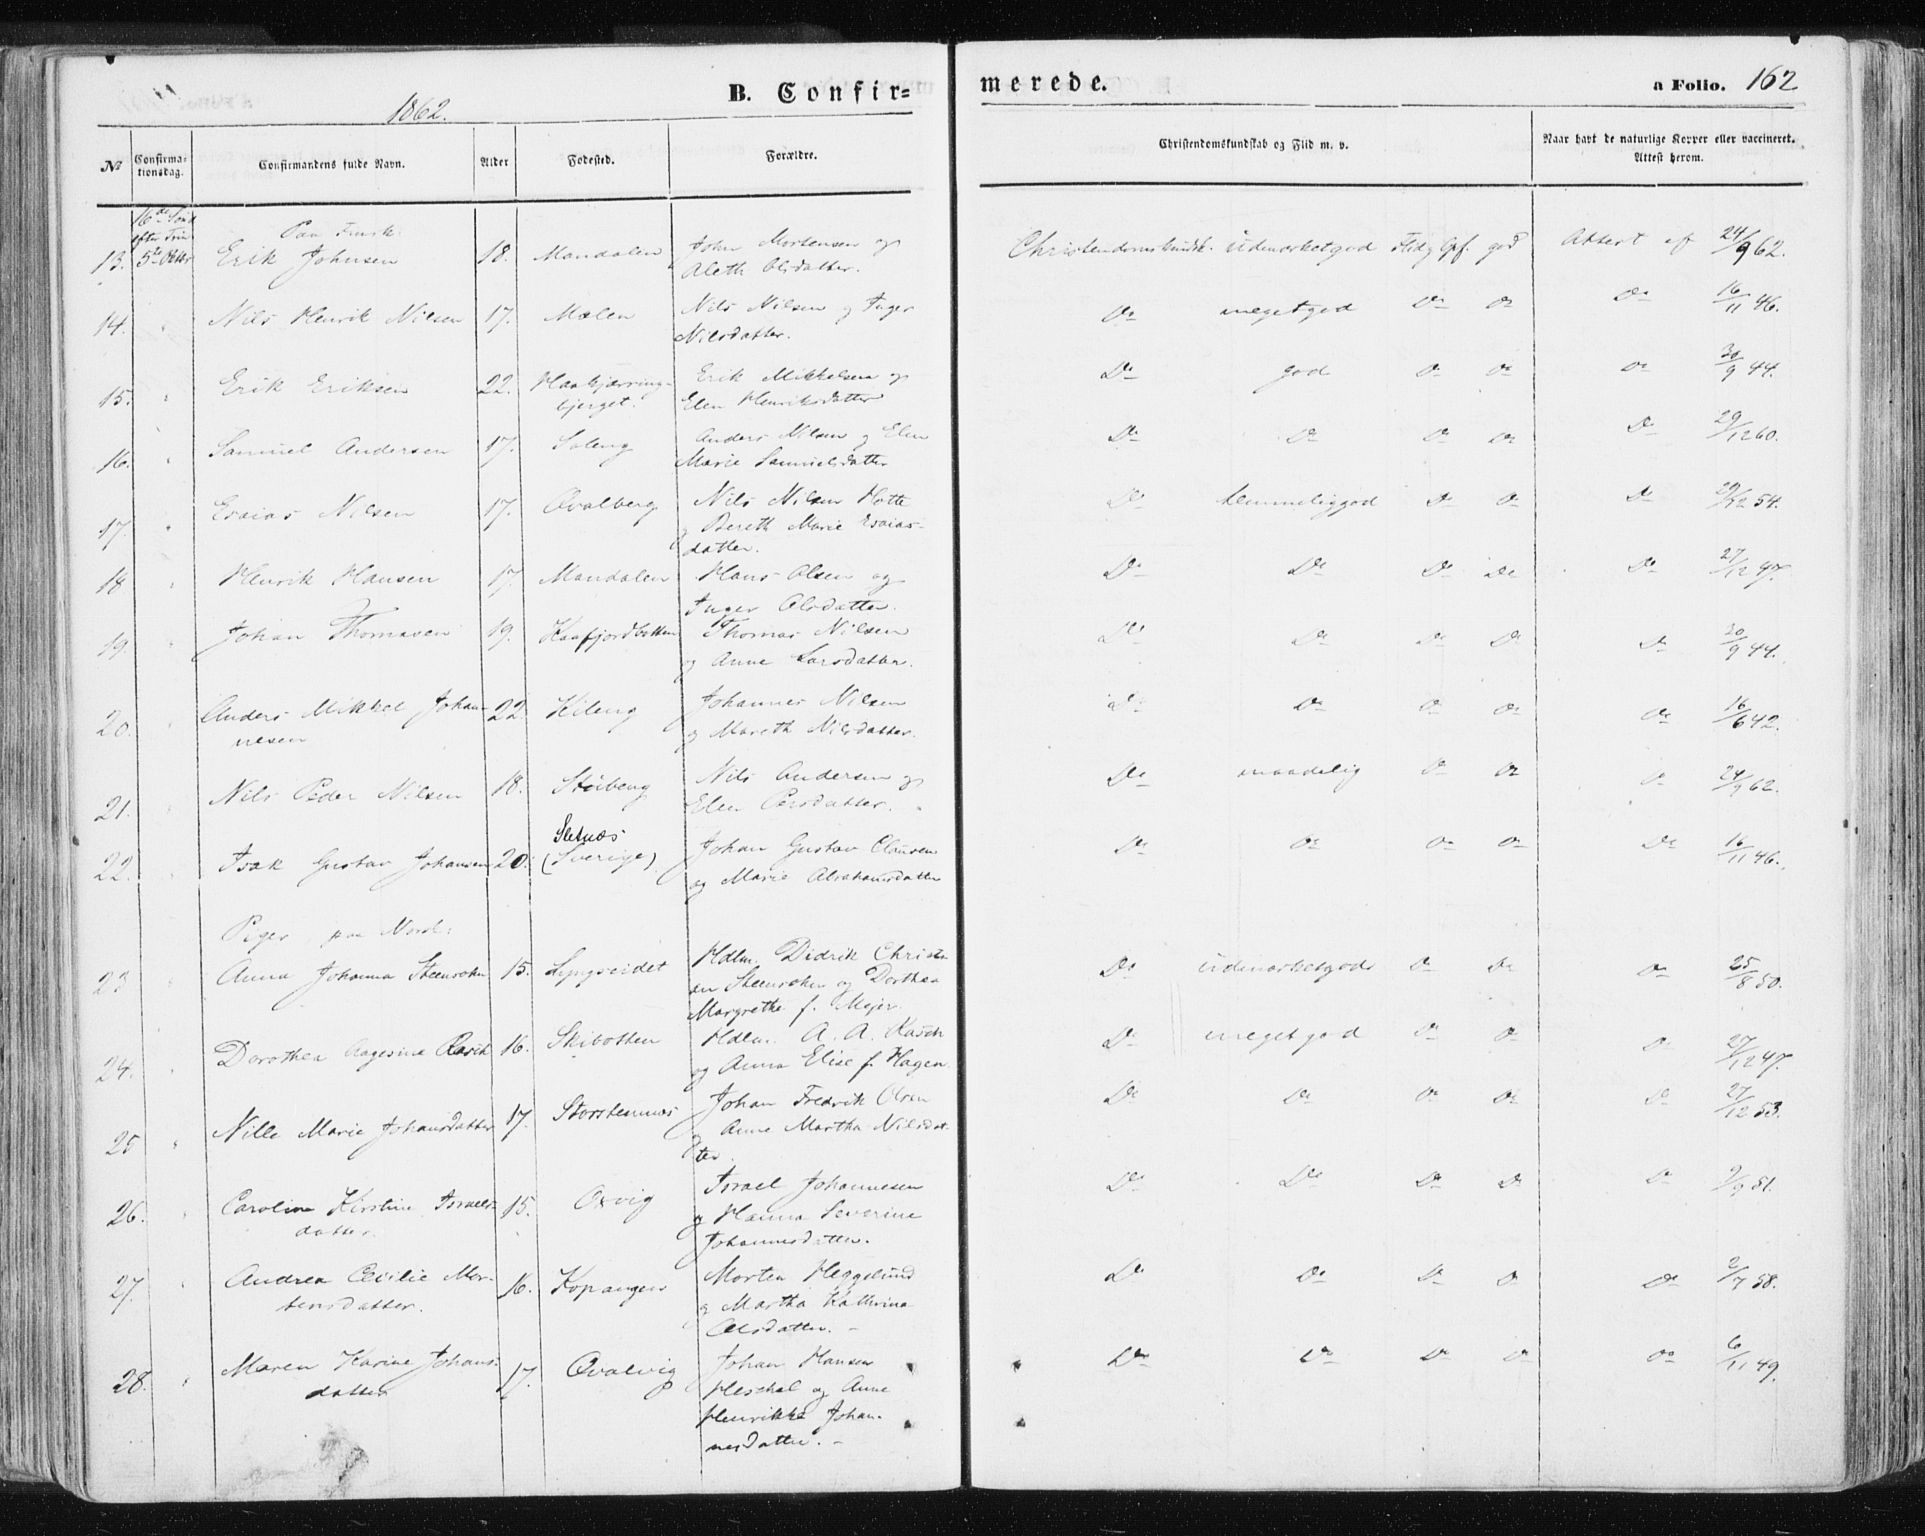 1862.
B. Confir=
merede.
a Folio. 162
No
Confirma-
tionsdag.
Confirmandens fulde Navn.
Alder
Fødested.
Forældre.
Christendomskundskab og Flid m. v.
Naar havt de naturlige Kopper eller vaccineret.
Attest herom.
16de Sønd
efter Trin
5te Oktbr
Paa Finsk.
13. Erik Johnsen 18. Mandalen John Mortensen og Christendomskundsk. udmærketgod Flid og Opf. god Attest af 24/9 62.
Aleth Olsdatter.
14. Nils Henrik Nilsen 17. Mælen Nils Nilsen og Inger Do megetgod Do Do Do 16/11 46.
Nilsdatter.
15. Erik Eriksen 22. Haakjærring- Erik Mikkelsen og Do god Do Do Do 30/9 44.
bjerget. Elen Henriksdatter
16. Samuel Andersen 17. Soleng Anders Nilsen og Elen Do Do Do Do Do 29/12 60.
Marie Samuelsdatter
17. Esaias Nilsen 17. Qvalberg Nils Nilsen Hotte Do temmeliggod Do Do Do 29/12 54.
og Bereth Marie Esaias-
datter.
18 Henrik Hansen 17. Mandalen Hans Olsen og Do Do Do Do Do 27/12 47.
Inger Olsdatter.
19. Johan Thomasen 19. Kaafjordbotten Thomas Nilsen Do Do Do Do Do 30/9 44.
og Anne Larsdatter.
20. Anders Mikkel Johan- 22. Kileng Johannes Nilsen Do Do Do Do Do 16/6 42.
nesen og Mareth Nilsdatter.
21. Nils Peder Nilsen 18. Støibeng Nils Andersen og Do maadelig Do Do Do 24/9 62.
Elen Persdatter.
22. Isak Gustav Johansen 20. Sletnæs Johan Gustav Clausen Do Do Do Do Do 16/11 46.
(Sverige) og Marie Abrahamsdatter
Piger paa Norsk:
23 Anna Johanna Steensohn 15. Lyngseidet Hdlm. Didrik Christi- Do udmærketgod Do Do Do 25/8 50.
an Steensohn og Dorthea
Margrethe f. Mejer.
24. Dorothea Aagesine Rasch 16. Skibotten Hdlm. A. A. Rasch Do megetgod Do Do Do 27/12 47.
og Anna Elise f. Hagen.
25 Nille Marie Johansdatter 17. Storstennæs Johan Fredrik Olsen Do Do Do Do Do 27/12 53.
og Anne Martha Nilsdat-
ter.
26. Caroline Kirstine Israels- 15. Oxvig Israel Johannesen Do Do Do Do Do 2/9 51.
datter. og Hanna Severine
Johannesdatter.
27. Andrea Cecilie Mor- 16. Kopangen Morten Heggelund Do Do Do Do Do 2/7 58.
tensdatter. og Martha Kathrina
Olsdatter. -
28. Maren Karine Johans- 17. Qvalvig Johan Hansen Do Do Do Do Do 6/11 49.
datter Heschel og Anne
Henrikke Johan-
nesdatter. -